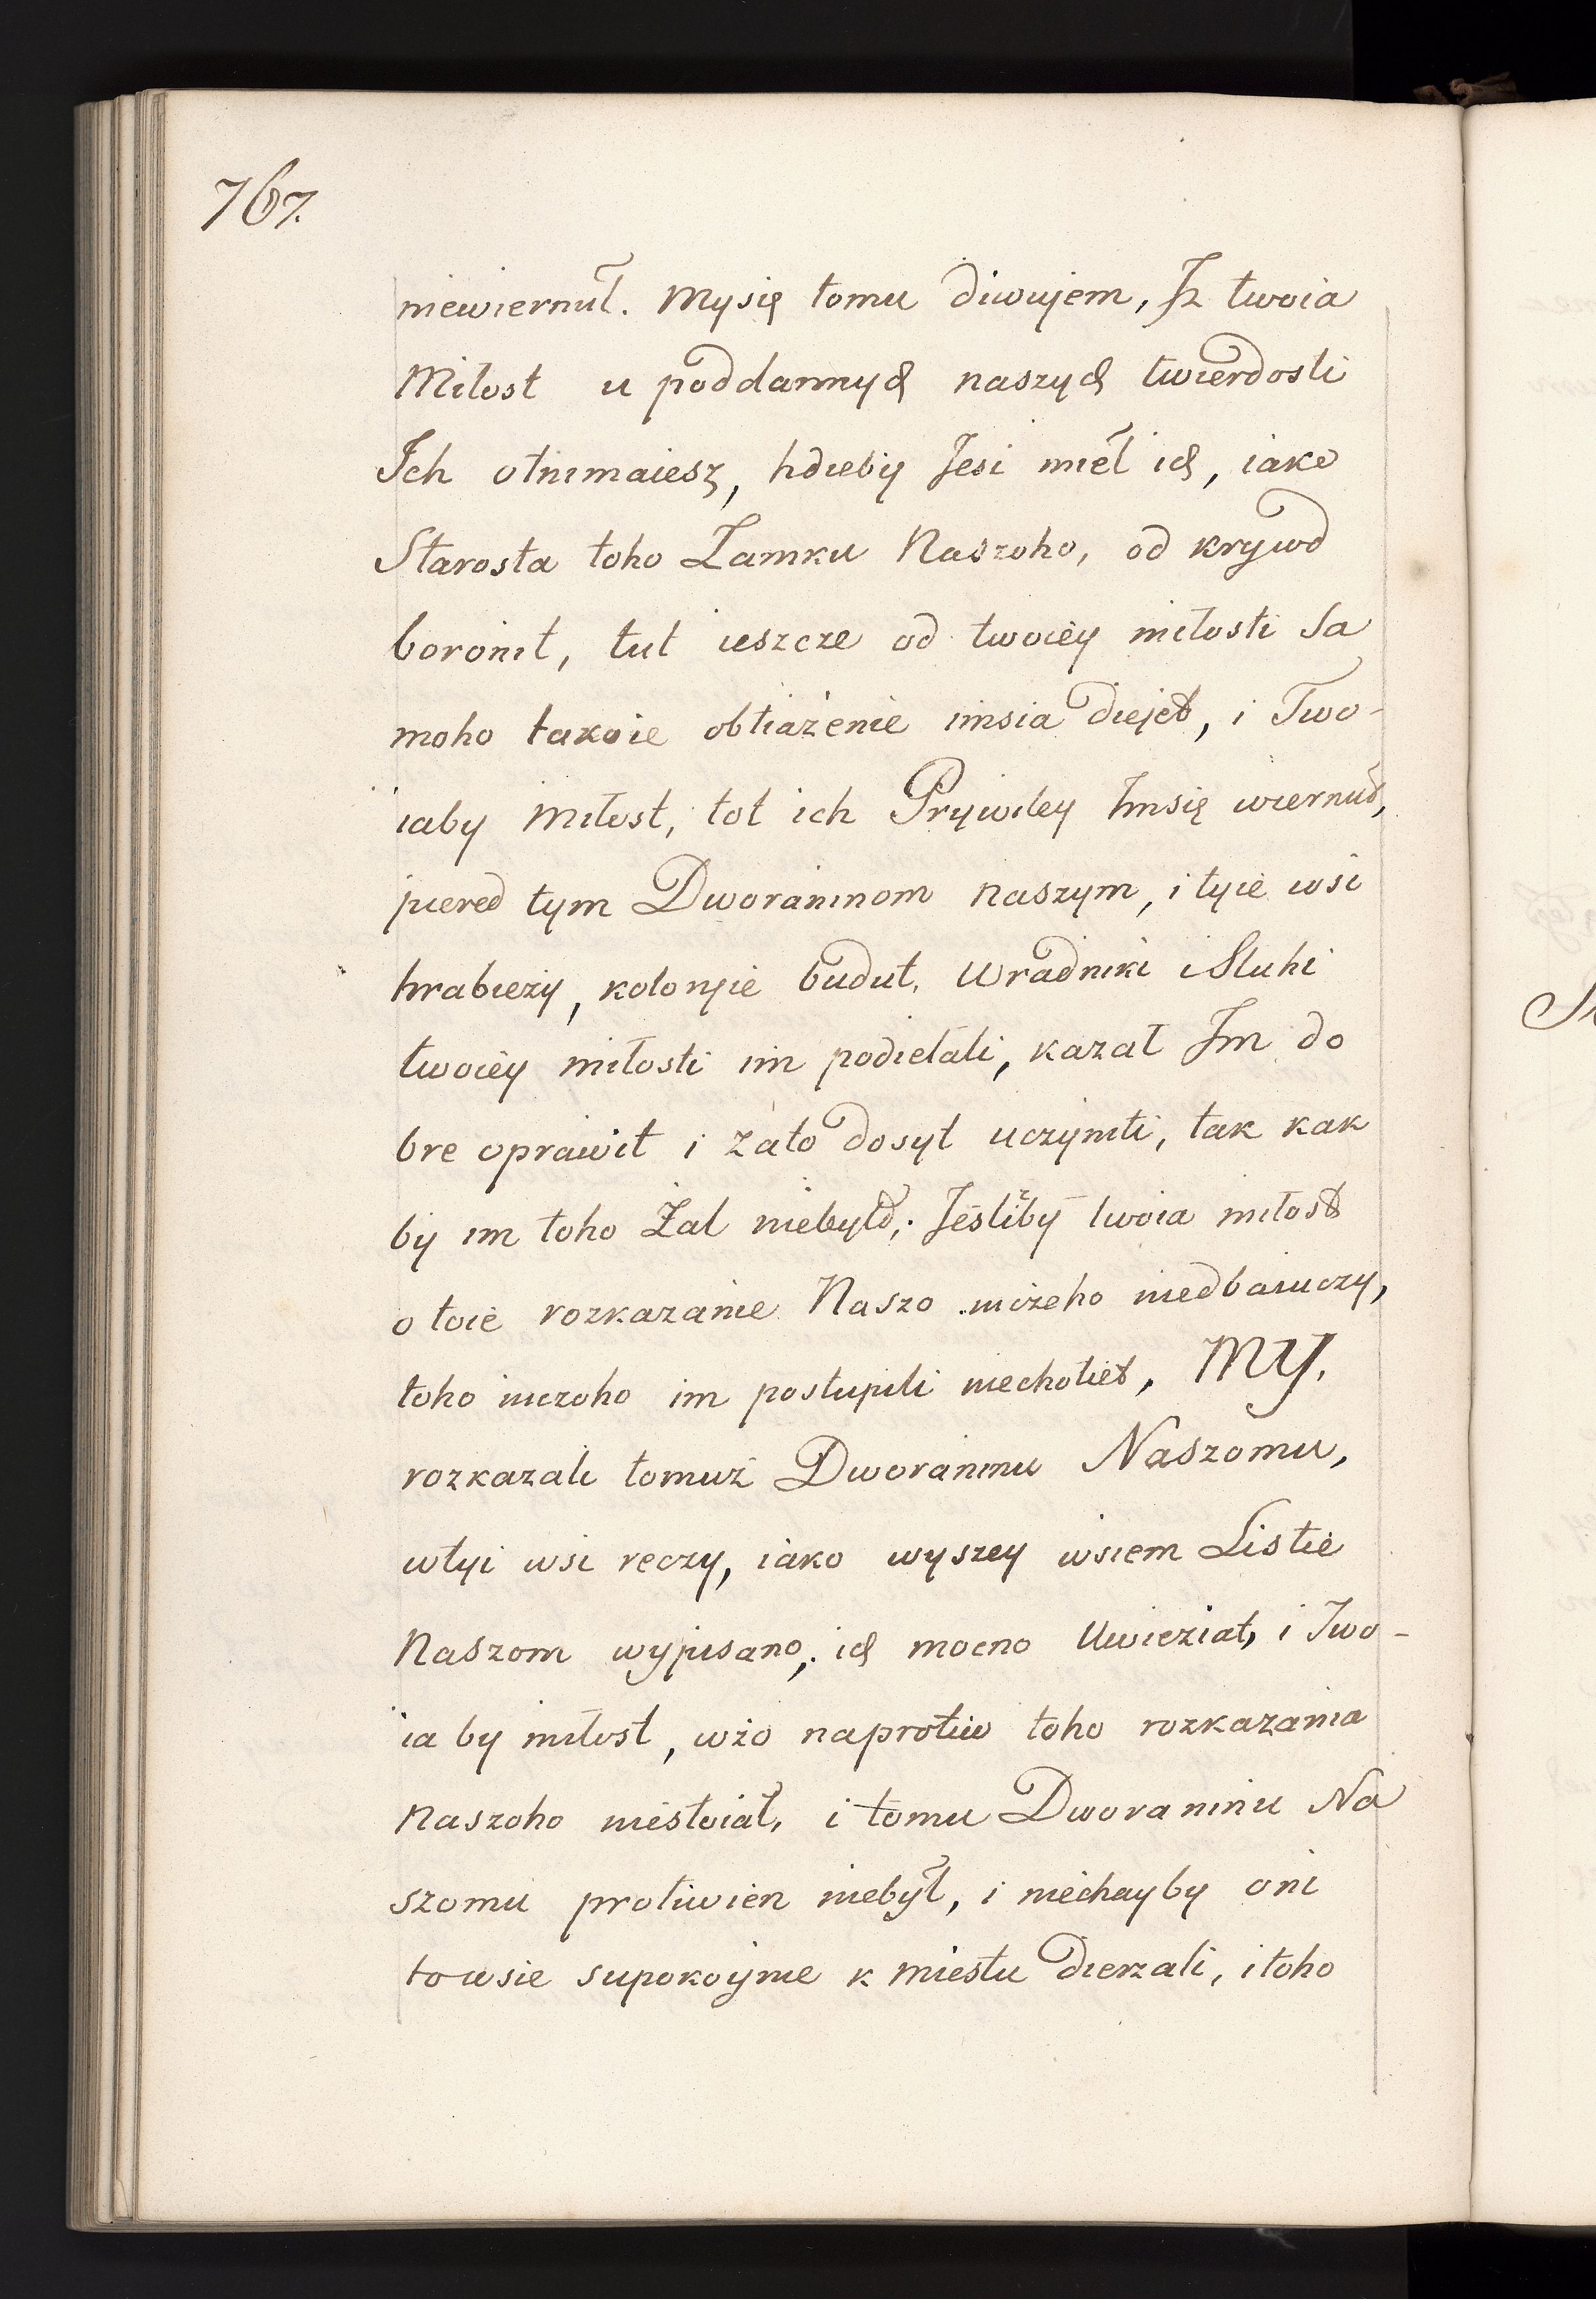 767.
niewiernuł. Mysię tomu diwujem, Jż twoia
Miłost u poddannych naszych twierdosti
Ich otnimaiesz, hdieby Jesi mieł ich, iako
Starosta toho Zamku Naszoho, od krywd
boronit, tut ieszcze od twoiey miłosti Sa
moho takoie obtiażenie imsia diejet, i Two-
iaby Miłost, tot ich Prywiley Imsię wiernuł,
pered tym Dworaninom naszym, i tyie wsi
hrabieży, kotoryie budut, Uradniki i Sluhi
twoiey miłosti im podiełali, kazał Im do
bre oprawit i zato dosyt uczyniti, tak kak
by im toho Żal niebyło; Jesliżby twoia miłost
o toie rozkazanie Naszo niczeho niedbaiuczy,
toho niczoho im postupili niechotieł, MY.
rozkazali tomuż Dworaninu Naszomu,
wtyi wsi reczy, iako wyszey wsiem Listie
Naszom wypisano, ich mocno Uwieziat, i Two-
ia by miłost, wżo naprotiw toho rozkazania
Naszoho niestoiał, i tomu Dworaninu Na
szomu protiwien niebył, i niechayby oni
towsie supokoynie k miestu dierżali, i toho